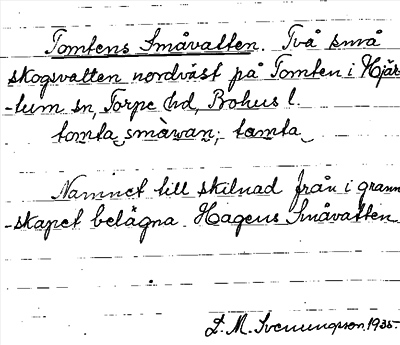 Tomtens Småvatten. Två små
skogsvatten nordväst på Tomten i Hjär-
-tum sn, Torpe hd, Bohus l.
tomta småwan; tomta
Namnet till skilnad från i grann
-skapet belägna Hagens Småvatten
D. M. Svenungson 1935.